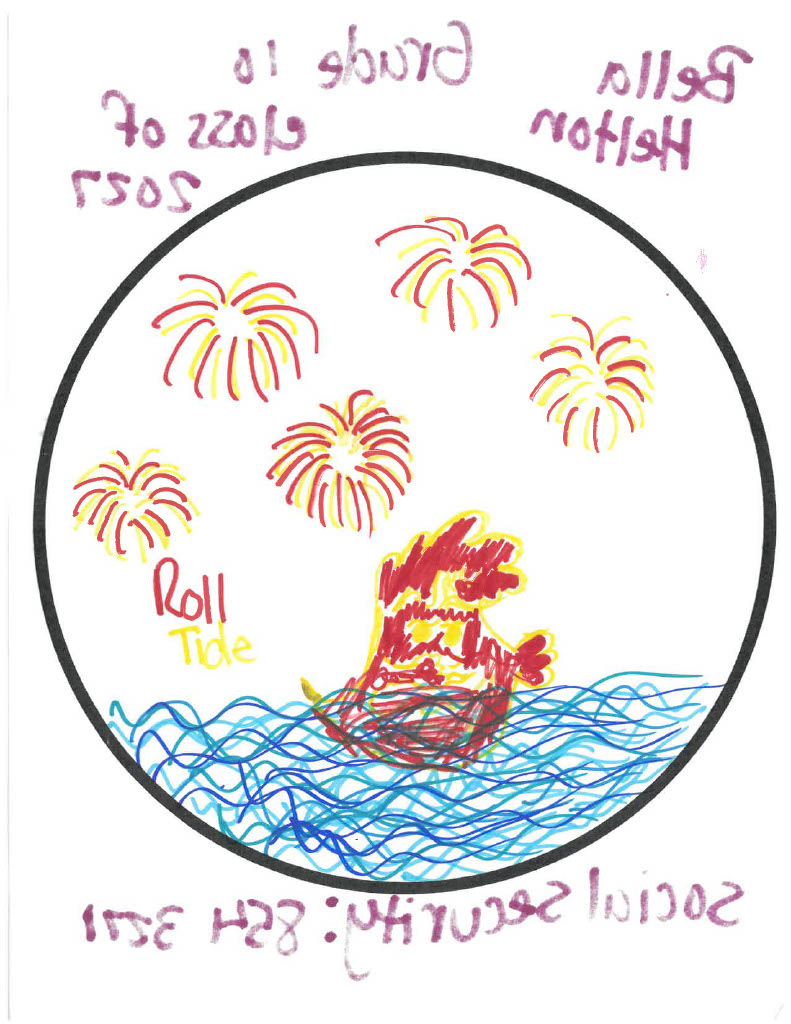 Bella Helton
Grade 10
class of 2027
Roll
Tide
Social Security: